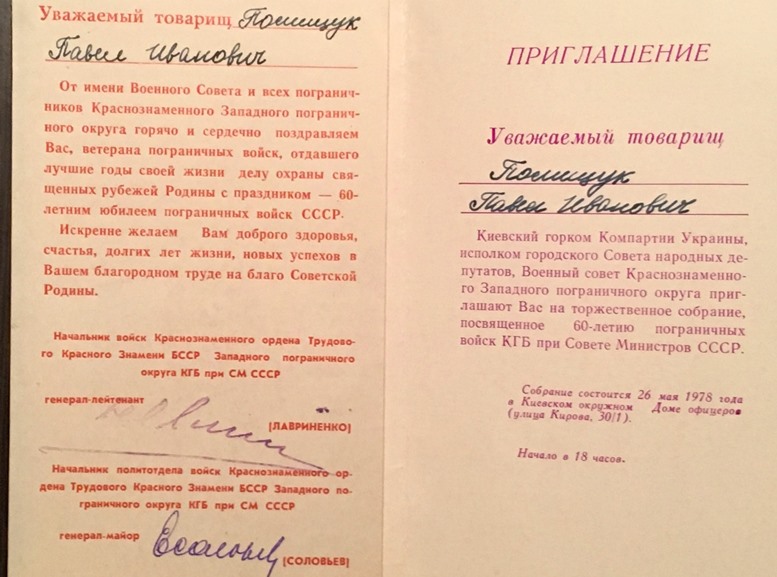 Уважаемый товарищ Полищук
Павел Иванович
От имени Военного Совета и всех погранич-
ников Краснознаменного Западного погранич-
ного округа горячо и сердечно поздравляем
Вас, ветерана пограничных войск, отдавшего
лучшие годы своей жизни делу охраны свя-
щенных рубежей Родины с праздником — 60-
летним юбилеем пограничных войск СССР.
Искренне желаем Вам доброго здоровья,
счастья, долгих лет жизни, новых успехов в
Вашем благородном труде на благо Советской
Родины.
Начальник войск Краснознаменного ордена Трудово-
го Красного Знамени БССР Западного пограничного
округа КГБ при СМ СССР
генерал-лейтенант
[ЛАВРИНЕНКО]
Начальник политотдела войск Краснознаменного ор-
дена Трудового Красного Знамени БССР Западного по-
граничного округа КГБ при СМ СССР
генерал-майор
[СОЛОВЬЕВ]
ПРИГЛАШЕНИЕ
Уважаемый товарищ
Полищук
Павел Иванович
Киевский горком Компартии Украины,
исполком городского Совета народных де-
путатов, Военный совет Краснознаменно-
го Западного пограничного округа приг-
лашают Вас на торжественное собрание,
посвященное 60-летию пограничных
войск КГБ при Совете Министров СССР.
Собрание состоится 26 мая 1978 года
в Киевском окружном Доме офицеров
(улица Кирова, 30/1).
Начало в 18 часов.